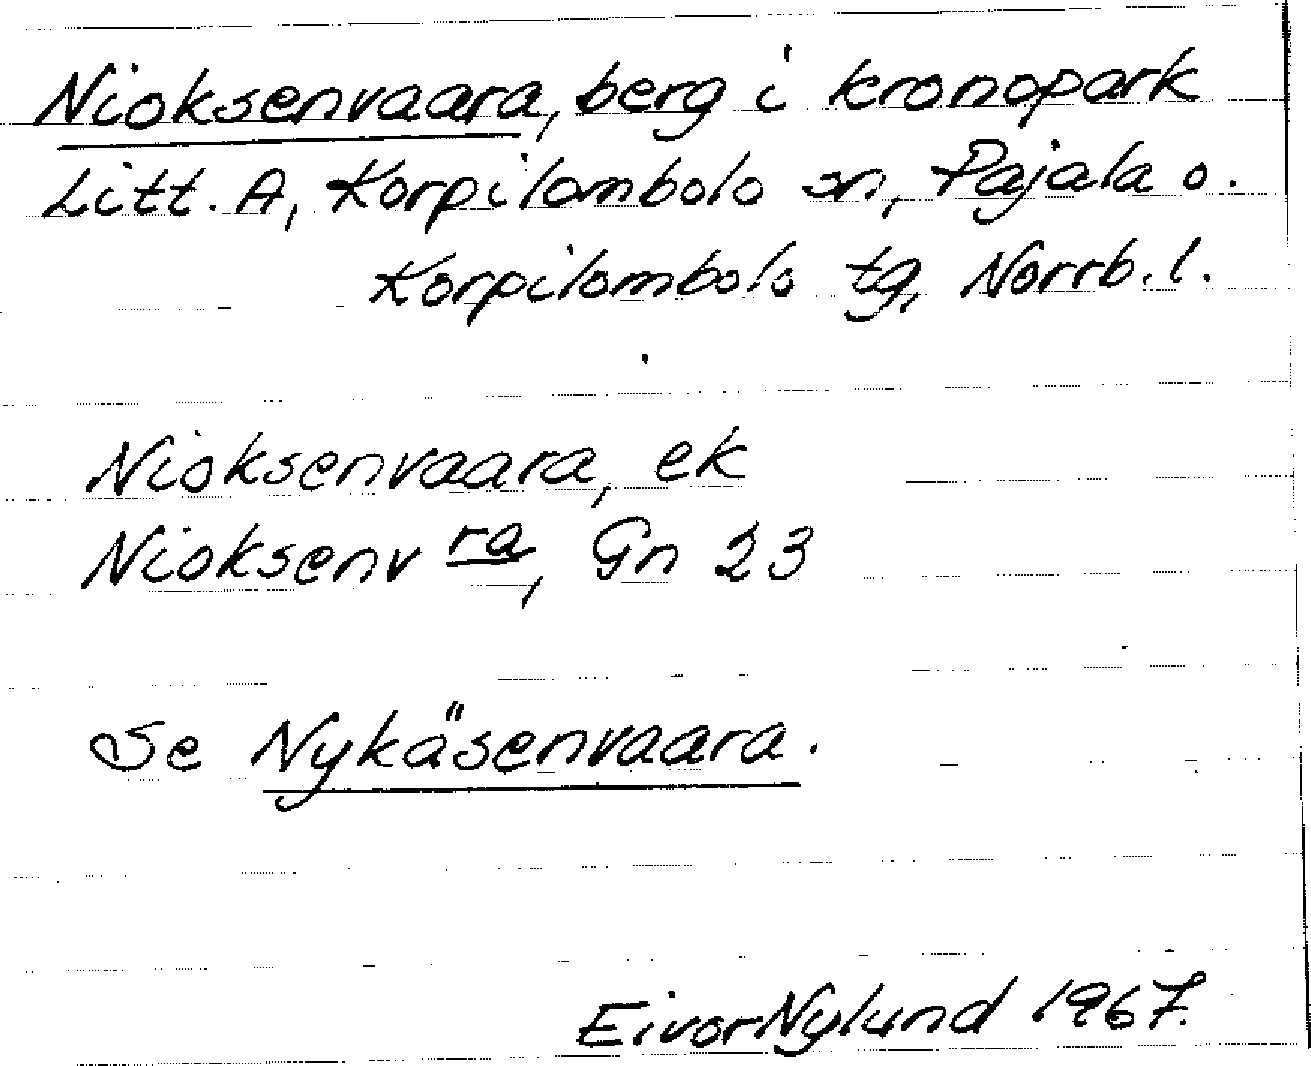 Nioksenvaara, berg i kronopark
Litt. A, Korpilombolo sn, Pajala o.
Korpilombolo tg, Norrb. l.
Nioksenvaara, ek
Nioksenv ra, Gn 23
Se Nykäsenvaara.
Eivor Nylund 1967.